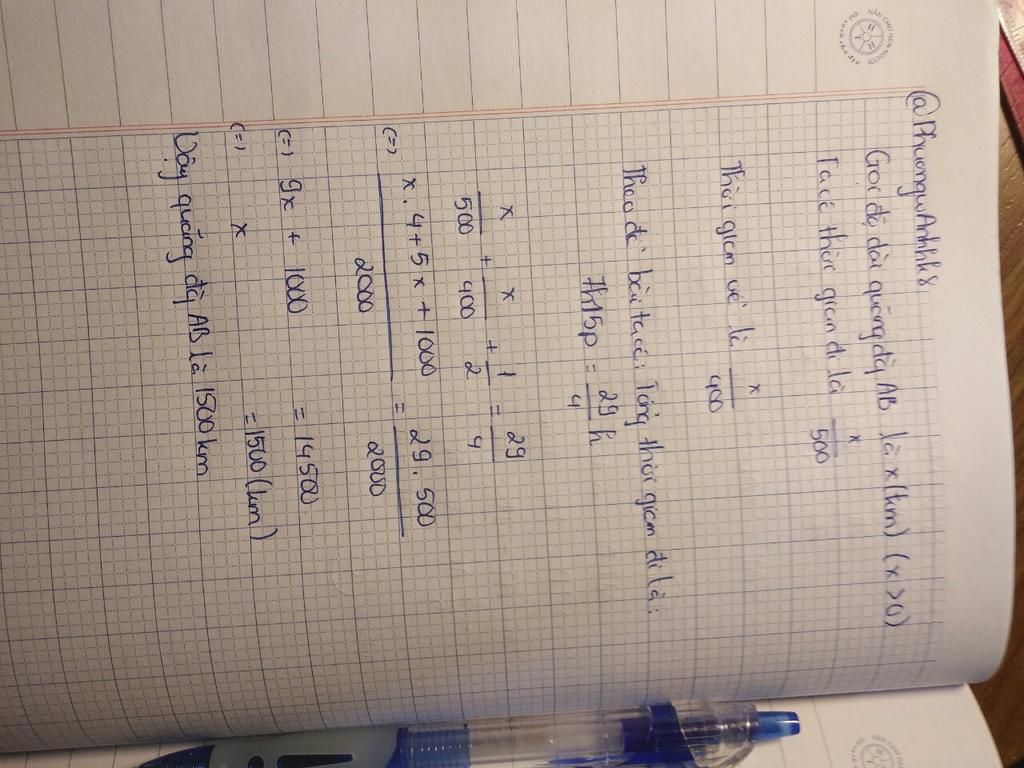 @PhuonguAnhhk8
Gọi độ dài quãng đg AB là x (km) (x > 0)
Ta có thời gian đi là x/500
Thời gian về là x/400
Theo đề bài ta có: Tổng thời gian đi là:
7h15p = 29/4 h
x/500 + x/400 + 1/2 = 29/4
(=) (x.4 + 5x + 1000)/2000 = (29.500)/2000
(=) 9x + 1000 = 14500
(=) x = 1500 (km)
Vậy quãng đg AB là 1500 km